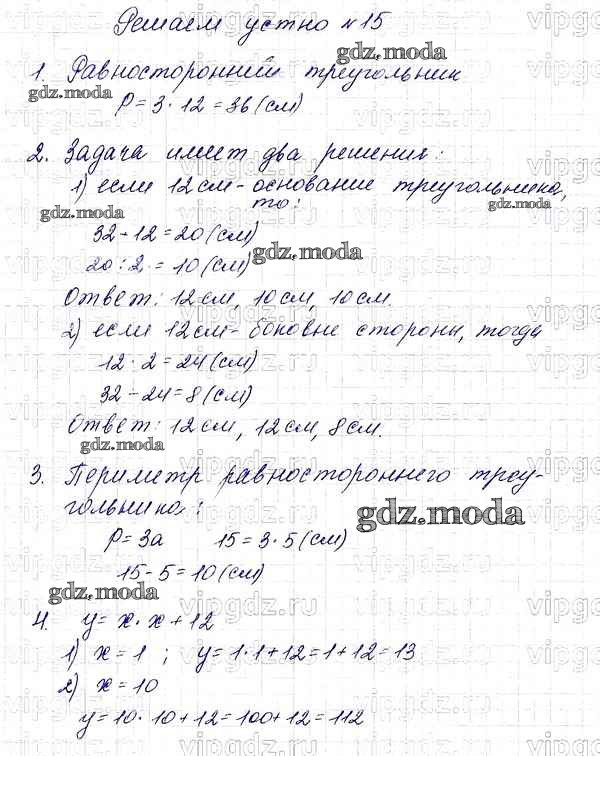 Решаем устно №15
1. Равносторонний треугольник
P = 3 · 12 = 36 (см)
2. Задача имеет два решения:
1) если 12 см - основание треугольника,
то:
32 - 12 = 20 (см)
20 : 2 = 10 (см)
Ответ: 12 см, 10 см, 10 см.
2) если 12 см - боковые стороны, тогда
12 · 2 = 24 (см)
32 - 24 = 8 (см)
Ответ: 12 см, 12 см, 8 см.
3. Периметр равностороннего треу-
гольника:
P = 3a 15 = 3 · 5 (см)
15 - 5 = 10 (см)
4. y = x · x + 12
1) x = 1 ; y = 1 · 1 + 12 = 1 + 12 = 13
2) x = 10
y = 10 · 10 + 12 = 100 + 12 = 112
gdz.moda
vipgdz.ru